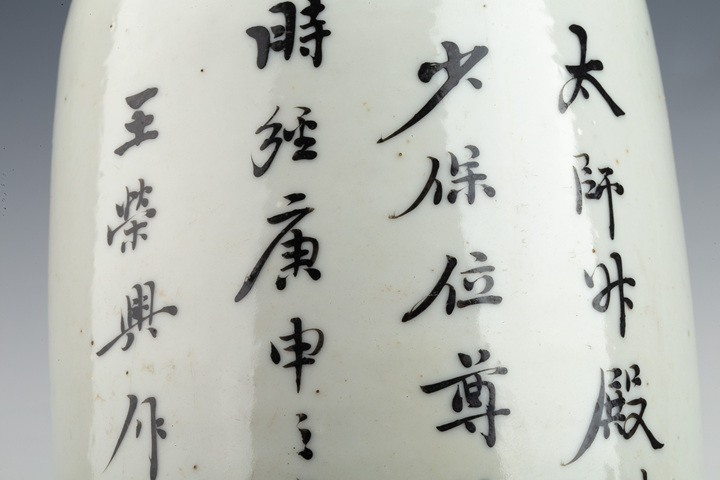 太師升殿
少保位尊
時經庚申之
王榮興作